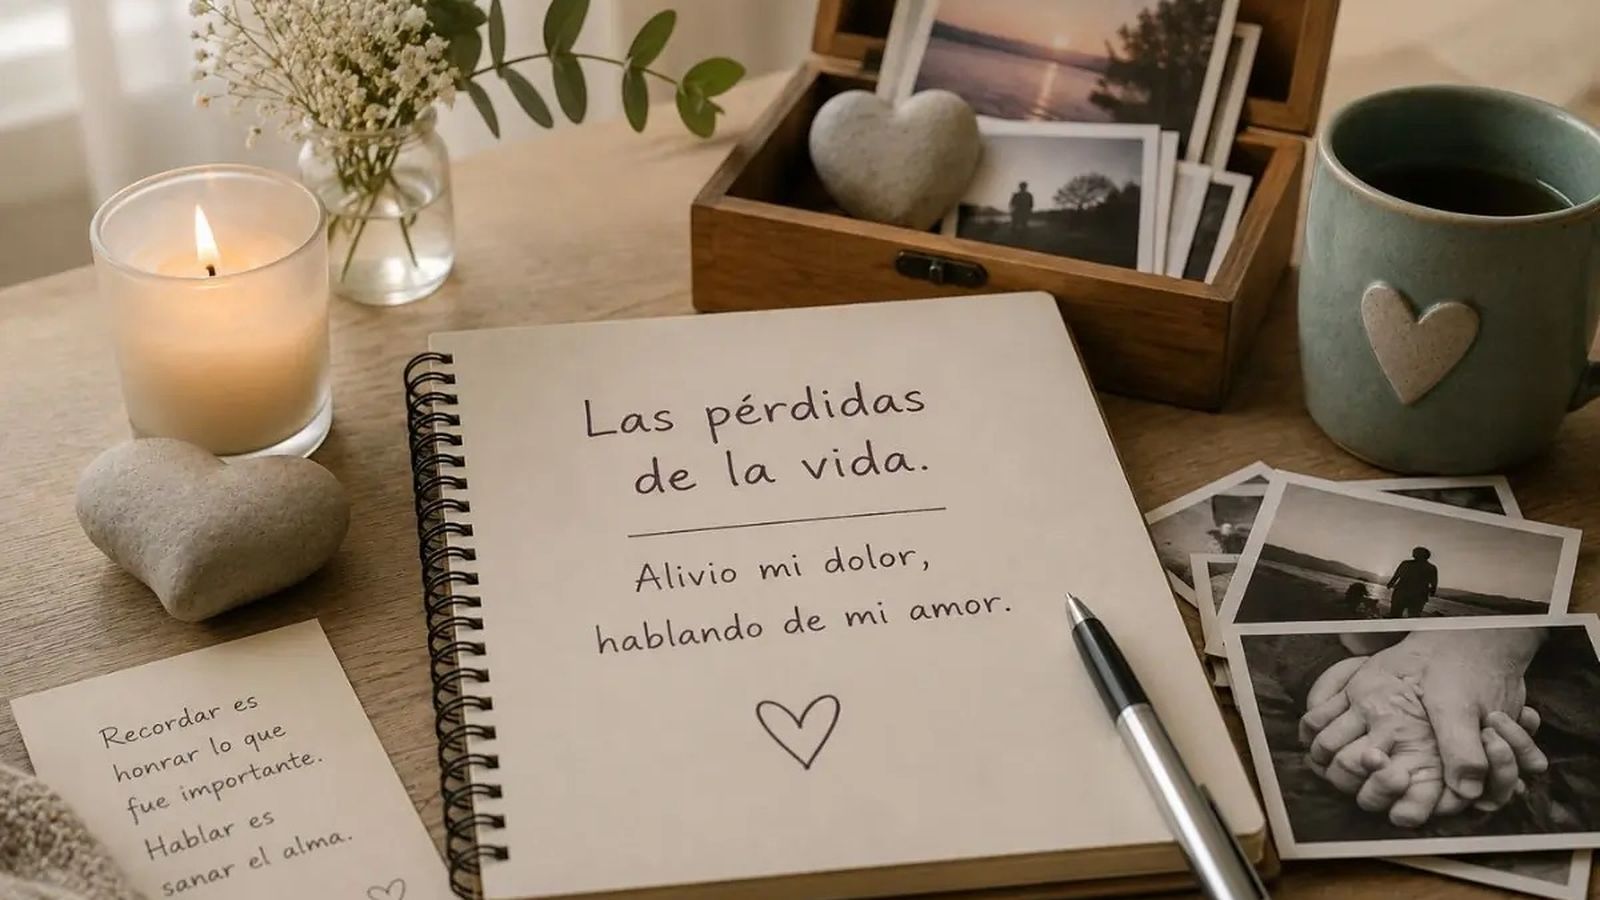 Las pérdidas
de la vida.
Alivio mi dolor,
hablando de mi amor.
Recordar es
honrar lo que
fue importante.
Hablar es
sanar el alma.